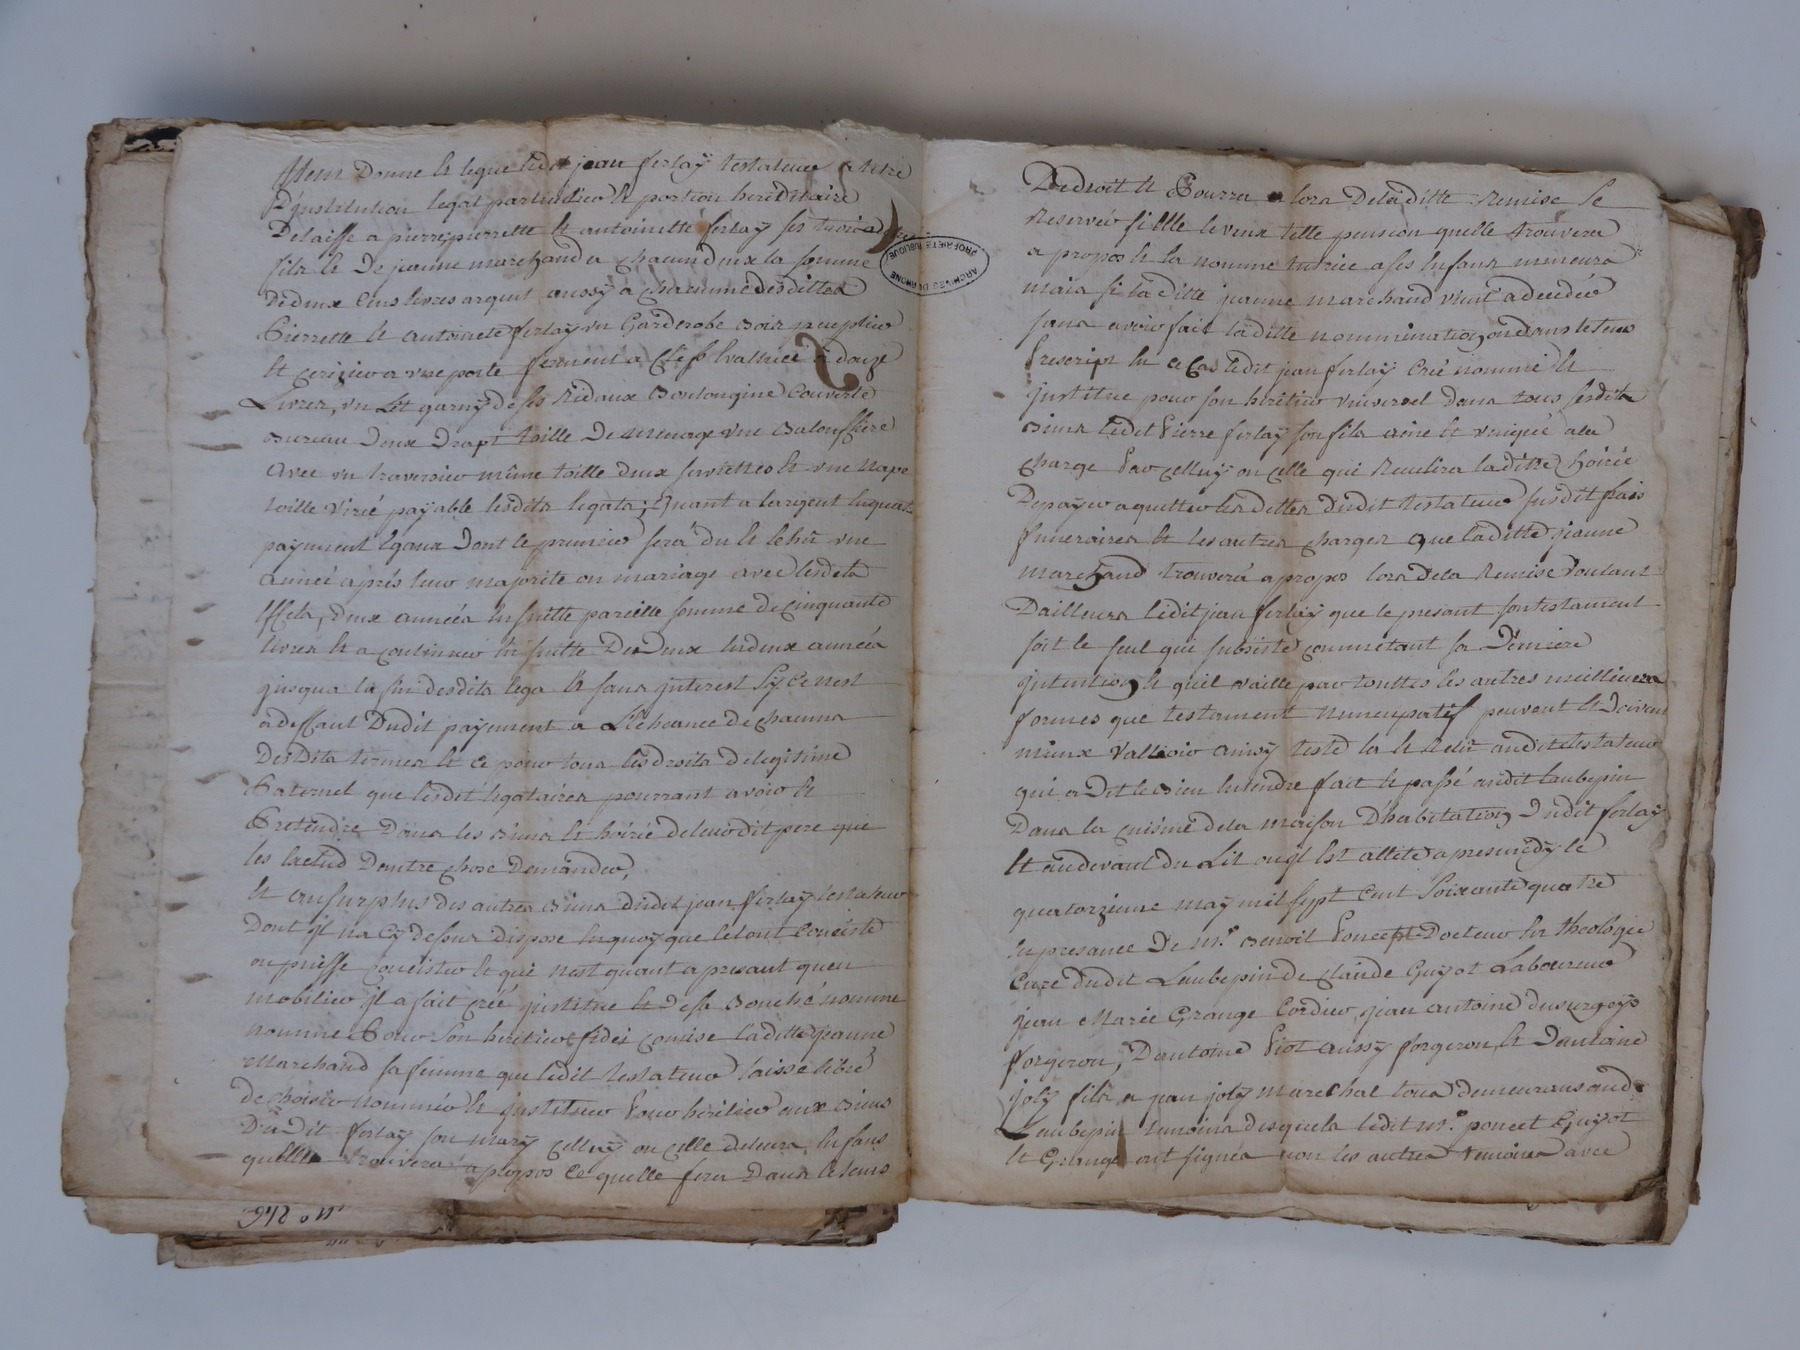 Item Donne et legue ledit jean ferlaÿ testateur a titre
D'institution legat particulier et portion hereditaire
Delaisse a pierre, pierrette et antoinette ferlaÿ ses trois
fils et De jeanne marchand a chacun deux la somme
De deux Cens livres argent aussÿ a chacunne desdittes
Pierrette et antoinete ferlaÿ un Garderobe bois peuplier
et cerizier a une porte ferment a Clef Evalluée a douze
Livres, un Lit garnÿ de ses Ridaux Boulongine Couverte
bureau Deux Drapt toille De menage une
Avec un traversier même toille deux serviettes et une Nape
toille Virée paÿable lesdits legats, quant a largent
payement Egaux Dont le premier sera du et Echu une
année aprés leur majorité ou mariage avec lesdits
Effets, deux années Ensuitte pareille somme de Cinquante
livres et a Continuer En suitte De Deux En deux années
jusqua la fin desdits lega et sans interest Sÿ Ce nest
a deffaut Dudit payement a L'Echeance de chacuns
Desdits termes et ce pour tous lesdroits delegitime
Paternel que lesdit legataires pourrant avoir et
Pretendre Dans les biens et hoirie deleurdit pere que
les Exclud Dautre chose Demander,
Et ausurplus des autres biens dudit jean ferlaÿ testateur
Dont il na Cÿ dessus Dispose Enquoÿ que letout Conciste
ou puisse Concister et qui nest quant a presant quen
mobilier il a fait créé institue et De sa Bouche nomme
nomme Pour Son heritiere fidei comise laditte jeanne
Marchand sa femme que ledit testateur laisse libre
de choisir nommér et instituer Pour heritier aux biens
Dudit ferlaÿ son marÿ celluÿ ou celle deleurs Enfans
quelle trouvera apropos ce quelle fera Dans le tems
De droit et Pourra lors Delàditte Remise Se
Reservér si Elle leveux telle pension quelle trouvera
a propos et la nomme tutrice a ses Enfans mineurs
mais si laditte jeanne marchand vient a decedér
sans avoir fait laditte nommination dans letems
Prescript En ce Cas ledit jean ferlaÿ Crée nomme et
institue pour son heritier universel dans tous sesdits
biens ledit Pierre ferlaÿ son fils ainé et unique ala
charge Par celluÿ ou celle qui Reculira laditte hoirie
Depaÿer aquitter les dettes dudit testateur susdit frais
funeraires et les autres charges que laditte jeanne
marchand trouvera apropos lors dela Remise Voulant
Dailleurs ledit jean ferlaÿ que le presant son testament
soit le seul qui subsiste commétant sa Derniere
intention et quil vaille par touttes les autres meillieures
formes que testament nuncupatif peuvent et Doivent
mieux Valloir ainsÿ testé lu et Relu audit testateur
qui a Dit le bien Entendre fait et passé audit Laubepin
Dans la cuisine dela maison D'habitation Dudit ferlaÿ
et audevant du Lit ou il Est allité apresmidÿ le
quatorzieme maÿ mil sept Cent Soixante quatre
En presance De mr. Benoit Poncet Docteur En theologie
Curé dudit Laubepin de Claude Guÿot Laboureur
jean Marie Grange Cordier, jean antoine dusurgeÿ
forgeron, D'antoine Piot aussÿ forgeron, et D'antoine
jolÿ fils a jean jolÿ marechal tous demeurans aud.
Laubepin temoins desquels ledit mr. poncet Guÿot
et Grange ont signés non les autres temoins avec
ARCHIVES DU RHONE
PROPRIÉTÉ PUBLIQUE